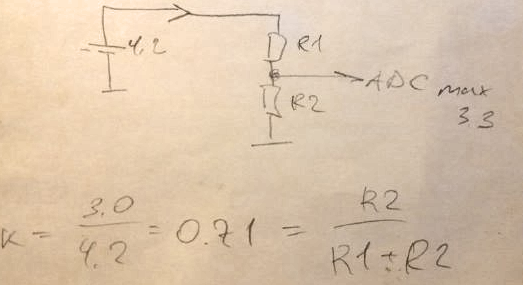 4.2
R1
ADC max
3.3
R2
K = 3.0 / 4.2 = 0.71 = R2 / R1 + R2